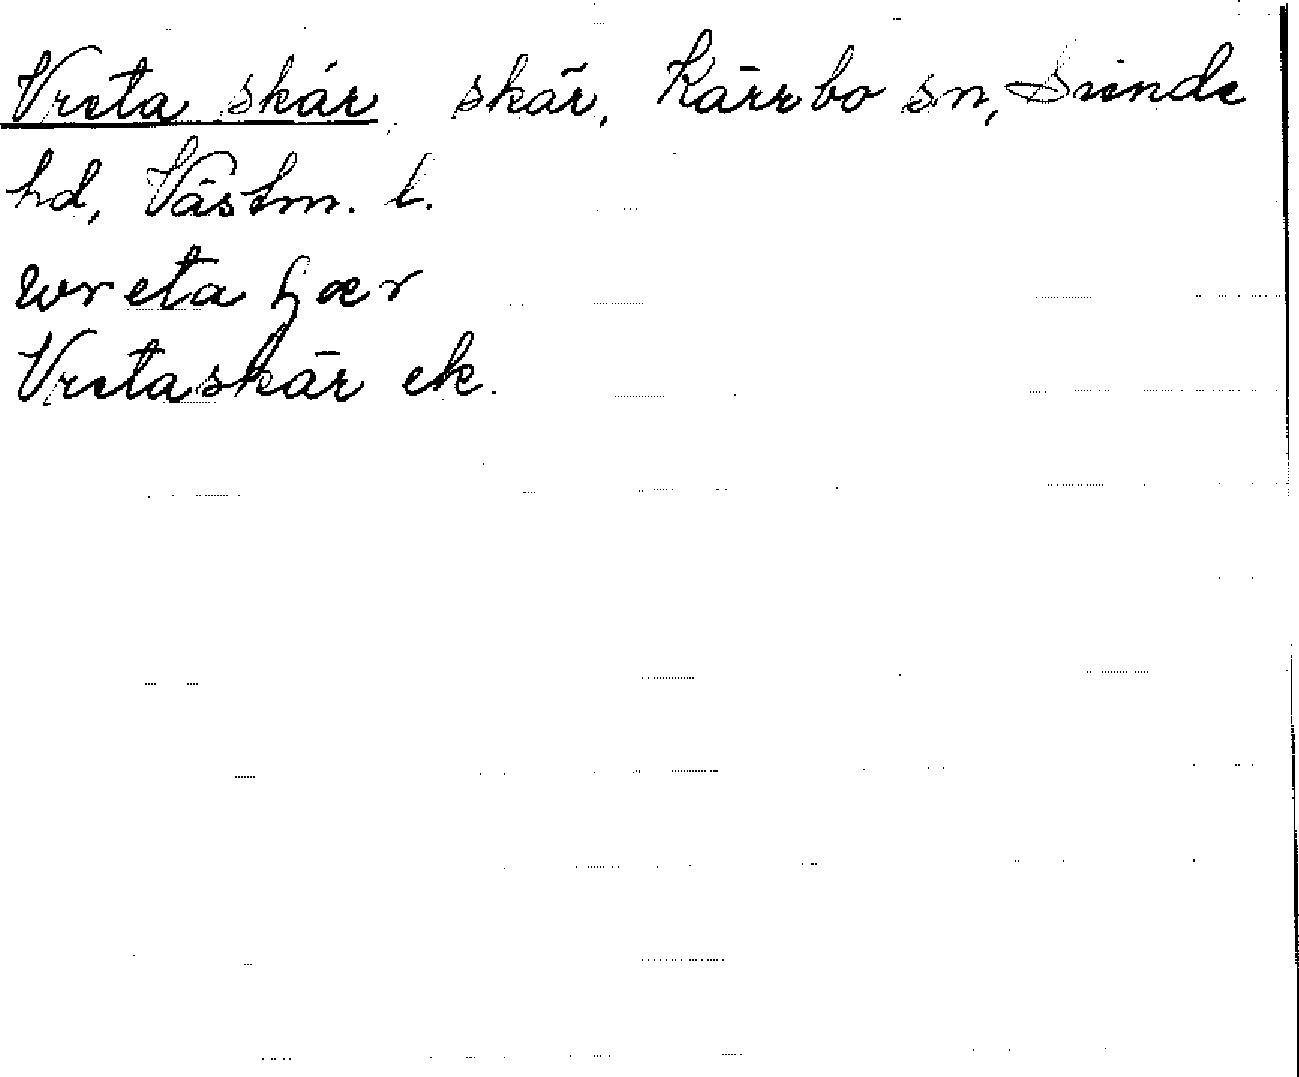 Vreta skär, skär, Kärrbo sn, Siende
hd, Västm. l.
wreta
Vretaskär ek.